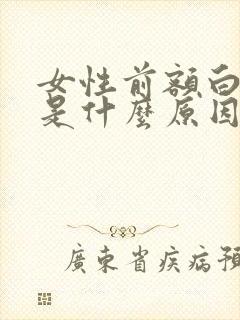 女性前額白
是什麼原因
廣東省疾病預